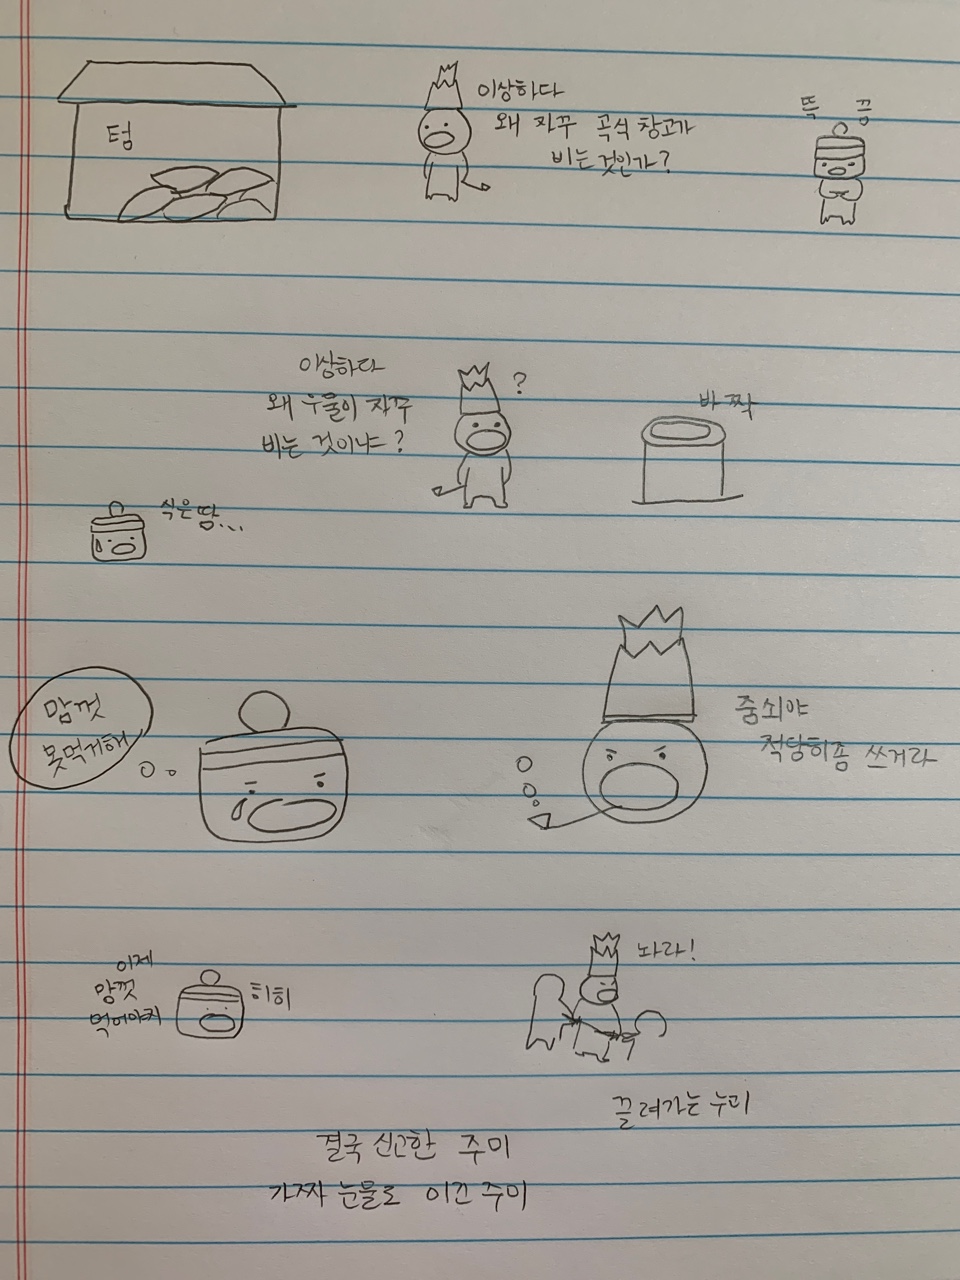 텅
이상하다
왜 자꾸 곡식 창고가
비는 것인가?
뜩 끔
이상하다
왜 우물이 자꾸
비는 것이냐?
?
바짝
식은땀...
맘껏
못먹게해
줌쇠야
적당히좀 쓰거라
이제
맘껏
먹어야지
히히
놔라!
끌려가는 누리
결국 신고한 주미
가짜 눈물로 이긴 주미